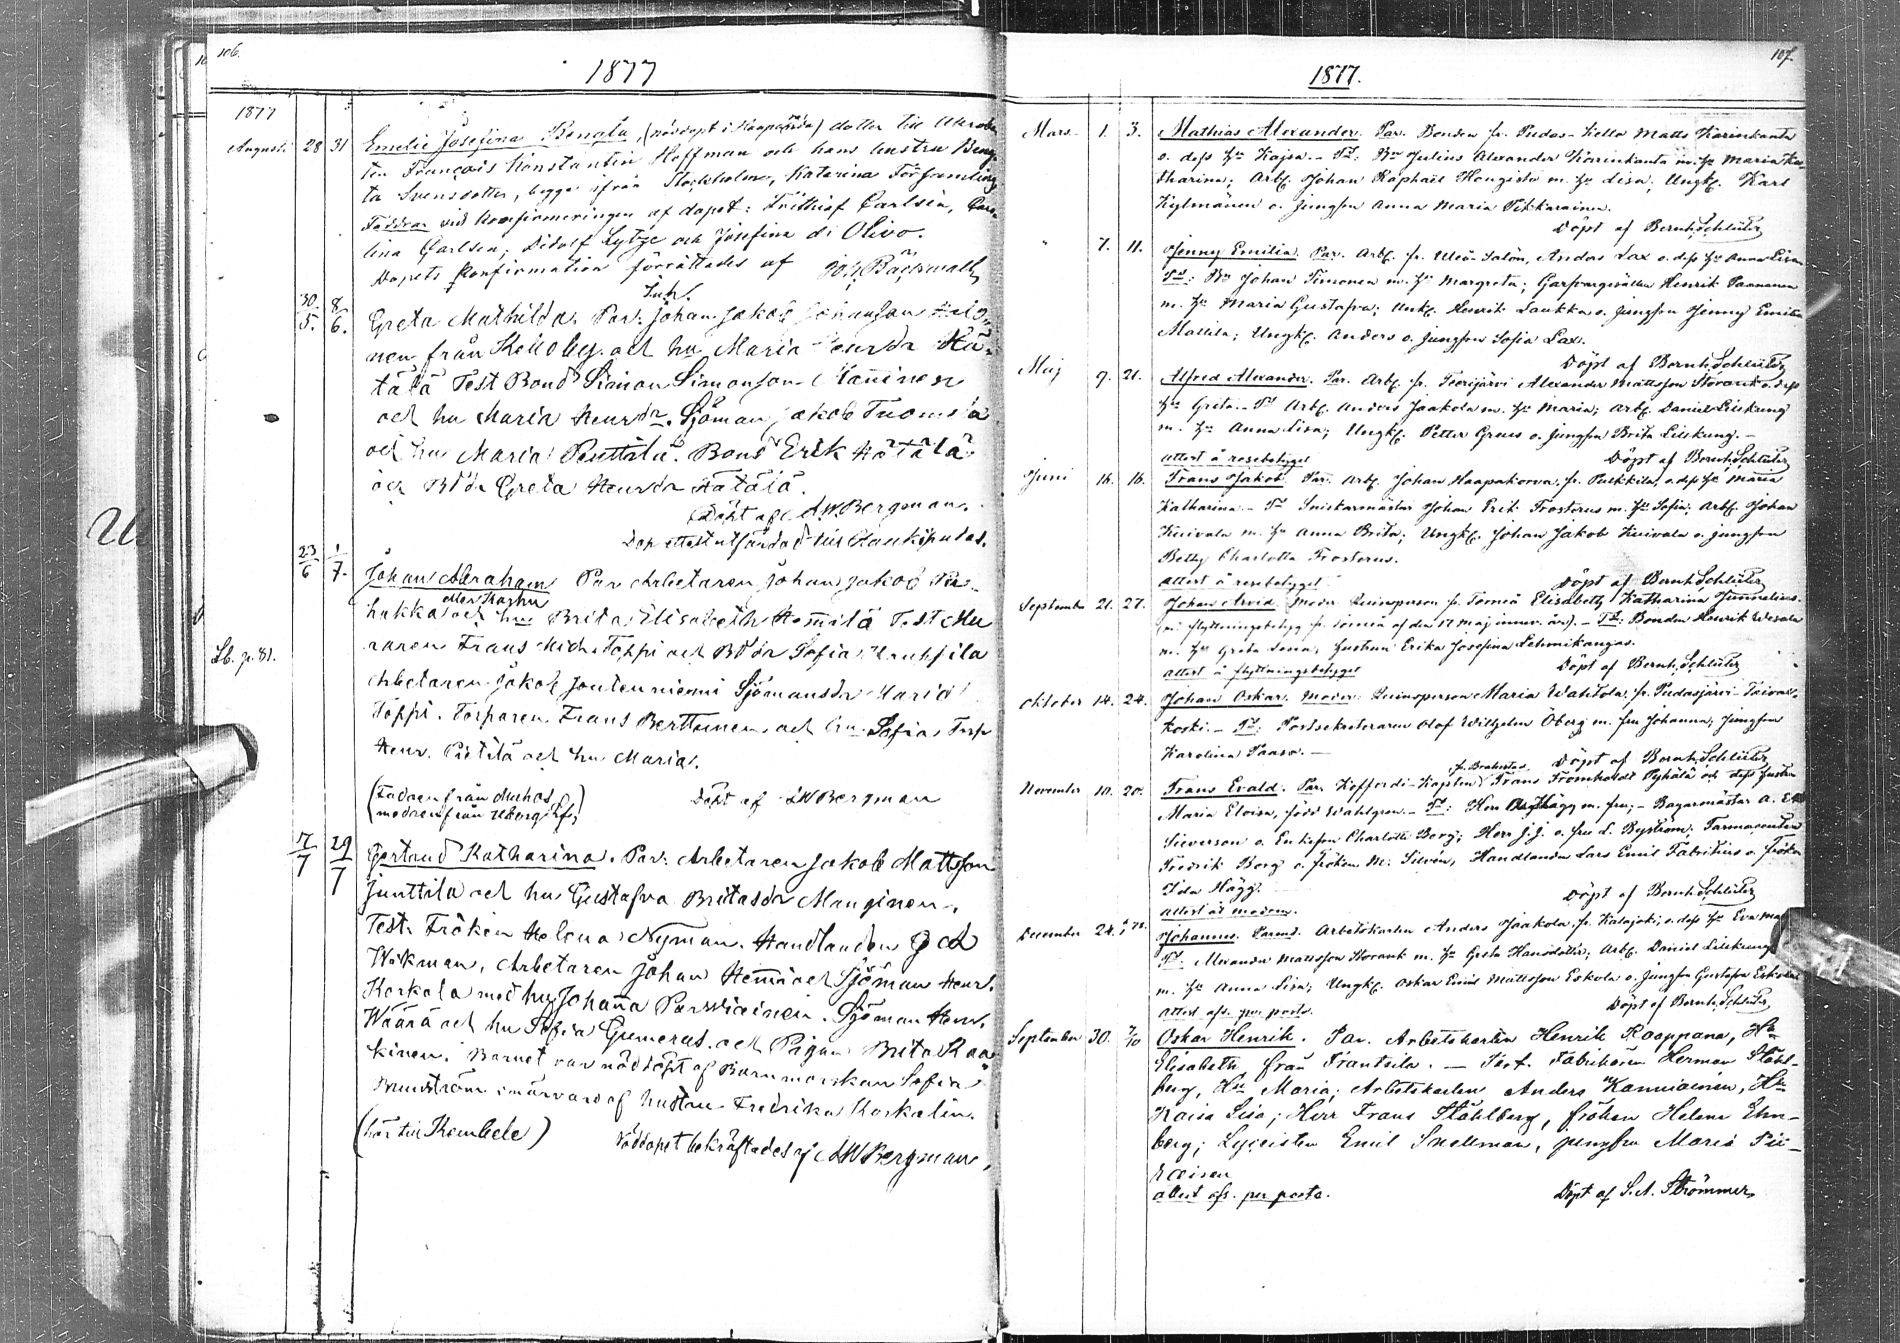 106.
1877
1877
Augusti 28 31 Emelie Josefina Renata, (nöddöpt i Haaparanda) dotter till
ten François Konstantin Hoffman och hans hustru Beng-
ta Svensdotter, begge ifrån Stockholm, Katarina Församling
Faddrar vid konfirmeringen af dopet: Frithiof Carlsén, Caro-
lina Carlsén; Didolf Lytze och Josefina di Olivo.
Dopets konfirmation förrättades af Joh. Bäckwall
30/5. 8/6. Greta Mathilda. Par: Johan Jakob Johansson
nen från Kello by och hu Maria Henrsdr Hä-
tälä Test Bond Simon Simonson Manninen
och hu Maria Henrsdr. Sjöman Jakob Tuomela
och hu Maria Penttilä. Bond Erik Hätälä
och Bddr Greta Henrsdr Hätälä.
Döpt af A.W. Bergman.
Dop attest utfärdad till Haukipudas.
23/6 1/7. Johan Abraham Par Arbetaren Johan Jakob Pu-
eller Karhu
hakka och hu Brita Elisabeth Hemmilä Test Mu
raren Frans Mich. Toppi och Bddr Sofia
Lb. p. 81.
Arbetaren Jakob Jontunniemi Sjömansdr Maria
Toppi. Torparen Frans Berttunen och hu Sofia, Torp
Henr. Pietilä och hu Maria.
(Fadren från Muhos
modren från Uleåborg lf.)
Döpt af A W Bergman
17/7 29/7 Gertrud Katharina. Par: Arbetaren Jakob Mattsson
Junttila och hu Gustafva Britasdr Manginen.
Test. Fröken Helena Nyman. Handlanden
Wikman, Arbetaren Johan Hemmi och Sjöman Henr.
Korkala med hu Johanna Parwiainen. Sjöman Henr.
Määrä och hu Sofia Gumerus och Pigan Brita Kaa-
kinen. Barnet var nöddöpt af Barnmorskan Sofia
Brunström i närvaro af hustru Fredrika Korkalin.
(hör till Kembele)
Nöddopet bekräftades af A W Bergman.
107.
1877.
Mars 1. 3. Mathias Alexander. Par. Bonden fr. Pudas-Kello Matts Karinkanta
o. dess hu Kajsa. – Tt: Bn Julius Alexander Karinkanta m. hu Maria Ka-
tharina; Arbk. Johan Raphael Hongisto m. hu Lisa; Ungk. Karl
Kylmänen o. Jungfru Anna Maria Tikkarainen.
Döpt af Bernh. Schlüter
" 7. 11. Jenny Emilia. Par. Arbk. fr. Uleå-Salön, Anders Lax o. dess hu Anna Lisa
Tt: Bn Johan Timonen m. hu Margreta; Garfvargesällen Henrik Paananen
m. hu Maria Gustafva; Ungk. Henrik Laukka o. jungfru Jenny Emilia
Mattila; Ungk. Anders o. jungfru Sofia Lax.
Döpt af Bernh. Schlüter
Maj 9. 21. Alfred Alexander. Par. Arbk. fr. Teerijärvi Alexander Mattsson Storank o. dess
hu Greta. – Tt Arbk. Anders Jaakola m. hu Maria; Arbk. Daniel Lillkung
m. hu Anna Lisa; Ungk. Petter Grus o. jungfru Brita Lillkung. –
attest å resebetyget Döpt af Bernh. Schlüter
Juni 16. 16. Frans Jakob. Par. Arbk. Johan Haapakorva fr. Pulkkila, o. dess hu Maria
Katharina – Tt Snickarmästar Johan Erik Frosterus m. hu Sofia; Arbk. Johan
Kuivala m. hu Anna Brita; Ungk. Johan Jakob Kuivala o. jungfru
Betty Charlotta Frosterus.
attest å resebetyget Döpt af Bernh. Schlüter
September 21. 27. Johan Arvid. Moder: Qvinsperson fr. Torneå Elisabeth Katharina Junnelius
(m. flyttningsbetyg fr. Torneå af den 17 maj innev. år). – Tt: Bonden Henrik Wesala
m. hu Greta Lena; hustrun Erika Josefina Lehmikangas.
attest å flyttningsbetyget Döpt af Bernh. Schlüter
Oktober 14. 24. Johan Oskar. Moder: Qvinsperson Maria Wahtola, fr. Pudasjärvi Taival-
koski. – Tt: Postsekreteraren Olof Wilhelm Öberg m. fru Johanna; jungfru
Karolina Paaso. –
Döpt af Bernh. Schlüter
November 10. 20. Frans Evald. Par. Koffardi-Kapten fr. Brahestad Frans Fromholdt Pyhälä och dess hustru
Maria Eloisa, född Wahlgren. – Tt: Herr Hägg m. fru; – Bagarmästar A.
Sieverson o. Enkefru Charlotte Borg; Herr J. J. o. fru L. Byström; Farmaceuten
Fredrik Borg o. fröken M. Silvén, Handlanden Lars Emil Fabritius o. fröken
Ida Hägg.
attest åt modern. Döpt af Bernh. Schlüter
December 24. Johannes. Parent. Arbetskarlen Anders Jaakola, fr. Kalajoki, o. dess hu Eva
Tt. Alexander Mattsson Storank m. hu Greta Hansdotter; Arbk. Daniel Lillkung
m. hu Anna Lisa; Ungk. Oskar Emil Mattsson Eskola o. Jungfru Gustafva Eskola
attest afs. per posto. Döpt af Bernh. Schlüter
September 30. 7/10 Oskar Henrik. Par. Arbetskarlen Henrik Kooppana, Hu
Elisabeth, från Frantsila. – Test. Fabrikören Herman Ståhl-
berg, Hu Maria; Arbetskarlen Anders Kanniainen, Hu
Kaisa Lisa; Herr Frans Ståhlberg, fröken Helene Ehn-
berg; Lyceisten Emil Snellman, jungfru Maria Pii-
rainen
attest afs. per posto. Döpt af S. A. Strömmer